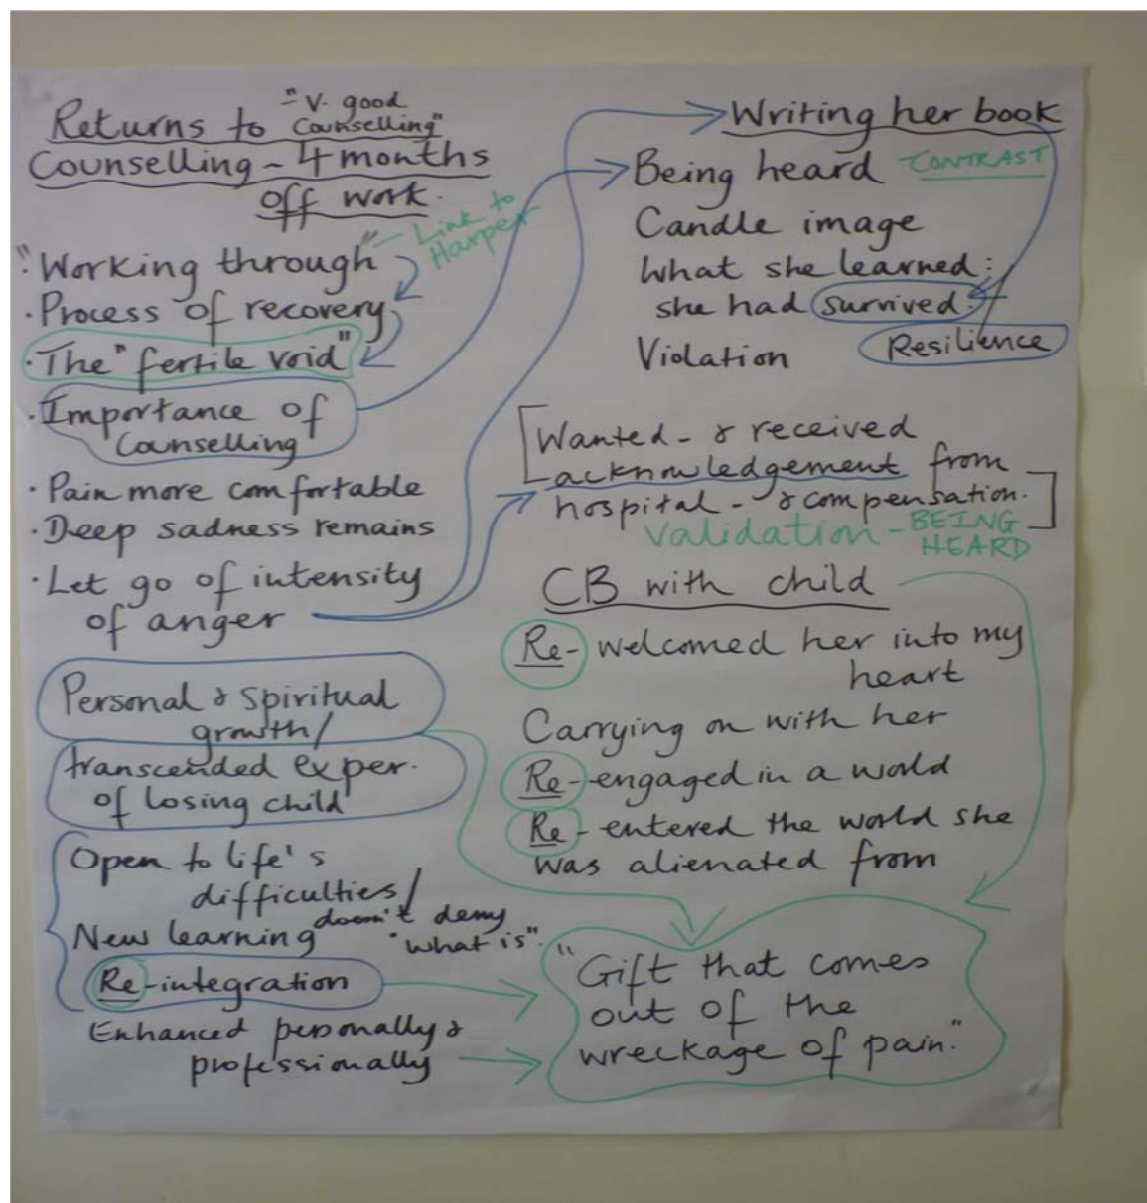 Returns to - "V. good
Counselling"
Counselling - 4 months
off work.
"Working through" - Link to
Harper
· Process of recovery
· The "fertile void"
· Importance of
Counselling
· Pain more comfortable
· Deep sadness remains
· Let go of intensity
of anger
Personal & spiritual
growth/
transcended exper.
of losing child
Open to life's
difficulties/
New learning doesn't deny
"what is".
Re-integration
Enhanced personally &
professionally
Writing her book
Being heard - CONTRAST
Candle image
What she learned:
she had survived.
Resilience
Violation
Wanted - & received
acknowledgement from
hospital - & compensation.
validation - BEING
HEARD
CB with child
Re-welcomed her into my
heart
Carrying on with her
Re-engaged in a world
Re-entered the world she
was alienated from
"Gift that comes
out of the
wreckage of pain."